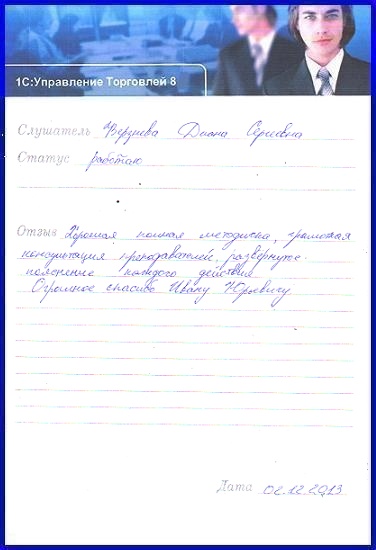 1С:Управление Торговлей 8
Слушатель Верзнева Диана Сергеевна
Статус работаю
Отзыв Хорошая полная методичка, грамотная
консультация преподавателей, развёрнутое
пояснение каждого действия.
Огромное спасибо Ивану Юрьевичу.
Дата 02.12.2013